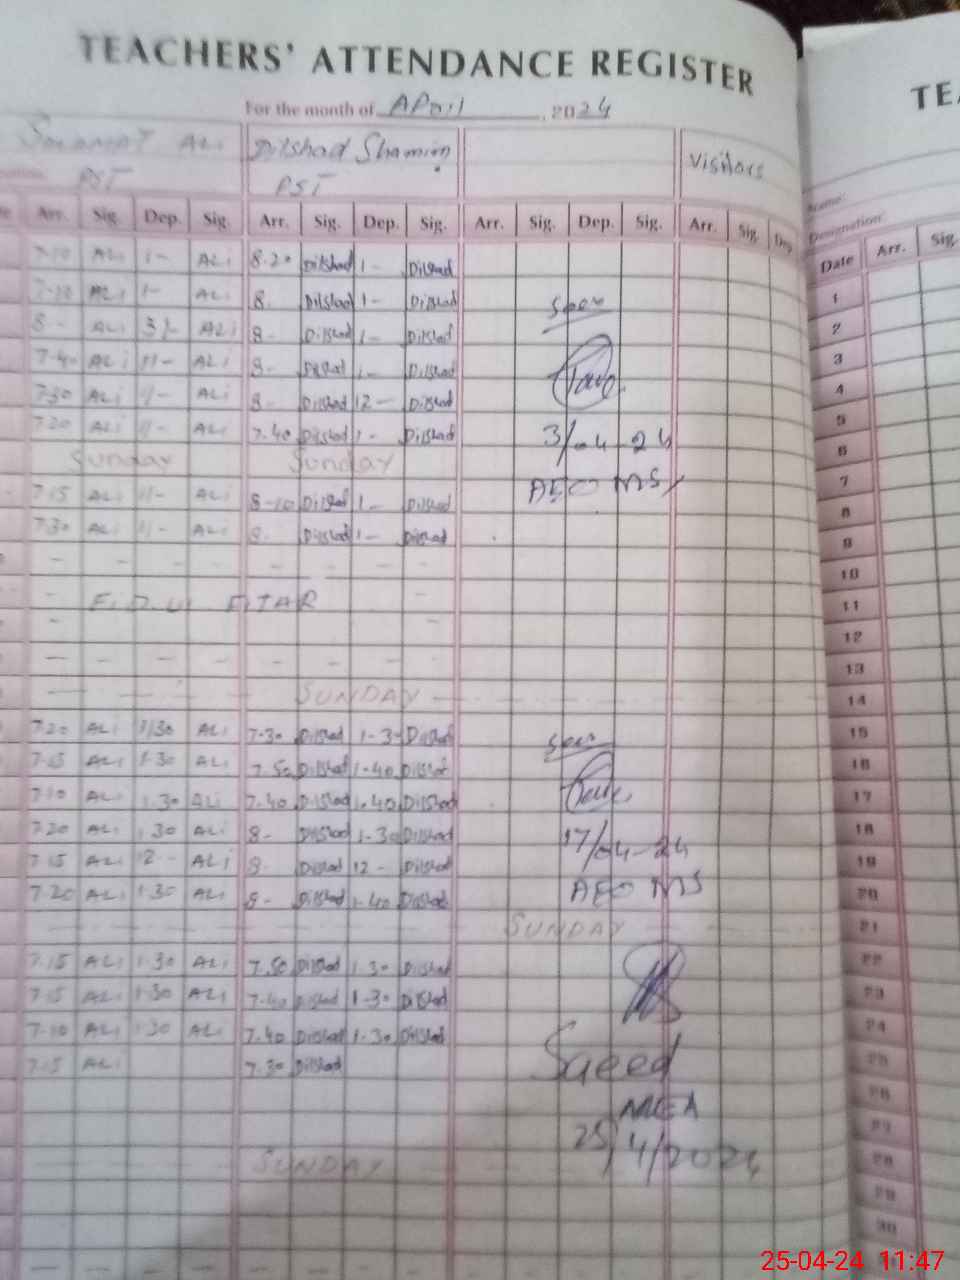 TEACHERS' ATTENDANCE REGISTER
TEA
For the month of April, 2024
ALi Dilshad Shamim Visitors
PST PST
Name:
Designation:
Arr. Sig. Dep. Sig. Arr. Sig. Dep. Sig. Arr. Sig. Dep. Sig. Arr. Sig. Dep Date Arr. Sig.
7-10 ALi 1- ALi 8.20 Dilshad 1- Dilshad
7-10 ALi 1- ALi 8. Dilshad 1- Dilshad Seen 1
8- ALi ALi 8- Dilshad 1- Dilshad 2
7-40 ALi 11- ALi 8- Dilshad 1- Dilshad 3
7-30 ALi ALi 8- Dilshad 12- Dilshad 4
7-20 ALi ALi 7.40 Dilshad 1- Dilshad 3/04-24 5
Sunday Sunday 6
7-15 ALi ALi 8-10 Dilshad 1- Dilshad AEO MS 7
7-30 ALi ALi 8. Dilshad 1- Dilshad 8
9
10
EID UL FITAR 11
12
13
SUNDAY 14
7-20 ALi ALi 7-30 Dilshad 1-3 Dilshad Seen 15
7-15 ALi 1-30 ALi 7.50 Dilshad 1-40 Dilshad 16
7-10 ALi 1.30 ALi 7-40 Dilshad 1.40 Dilshad 17
7-20 ALi 1.30 ALi 8- Dilshad 1-30 Dilshad 17/04-24 18
7-15 ALi 12- ALi 8- Dilshad 12- Dilshad 19
7-20 ALi 1-30 ALi 8- Dilshad 1-40 Dilshad AEO MS 20
SUNDAY 21
7-15 ALi 1-30 ALi 7.50 Dilshad 1 30 Dilshad 22
7-15 ALi 1-30 ALi 7-40 Dilshad 1-30 Dilshad 23
7-10 ALi 1-30 ALi 7.40 Dilshad 1-30 Dilshad 24
7-15 ALi 7-30 Dilshad Saeed 25
26
MEA 27
SUNDAY 25/4/2024 28
29
30
25-04-24 11:47